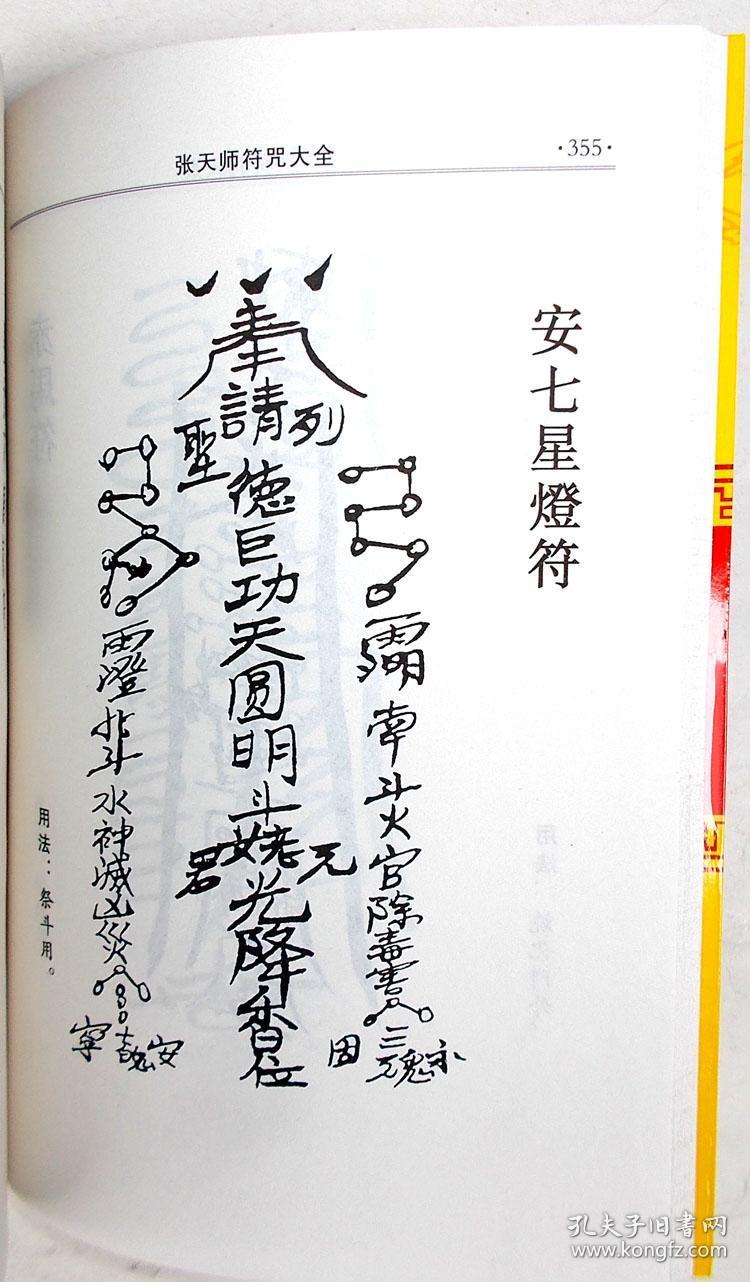 张天师符咒大全
·355·
安七星燈符
奉
請
聖 列
德巨功天圆明斗姥元君光降香位
南斗火官除毒害
三魂永固
北斗水神滅凶災
魄安寧
用法：祭斗用。
孔夫子旧书网
www.kongfz.com